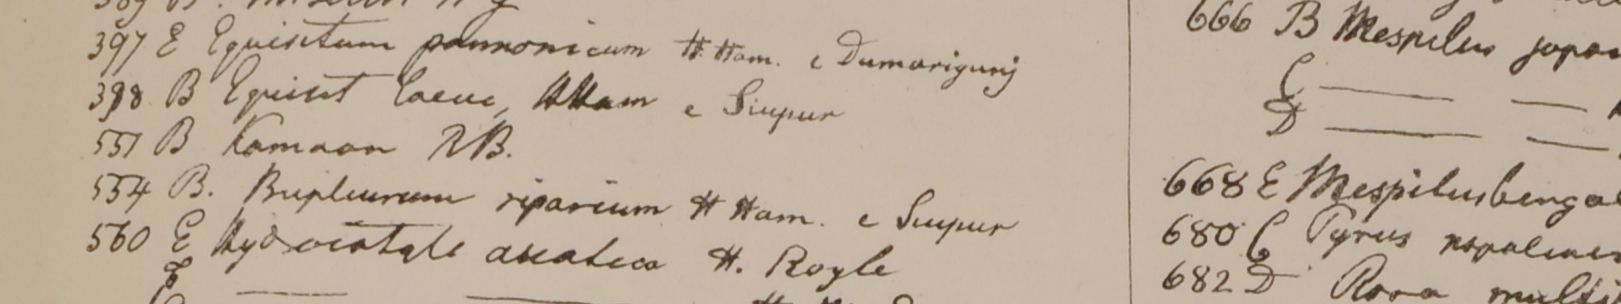 389 B.
397 E Equisetum pannonicum H. Ham. e Dumarigunj
398 B Equiset H Ham e Siupur
551 B Kamaon R B.
554 B. Bupleurum riparium H Ham. e Suupur
560 E Hydrocotyle asiatica H. Royle
666 B Mespilus japon
C
D
668 E Mespilus benga
680 C Pyrus
682 D Rosa multi